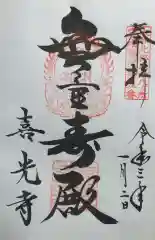 奉拝
令和三年
一月二日
無量寿殿
喜光寺